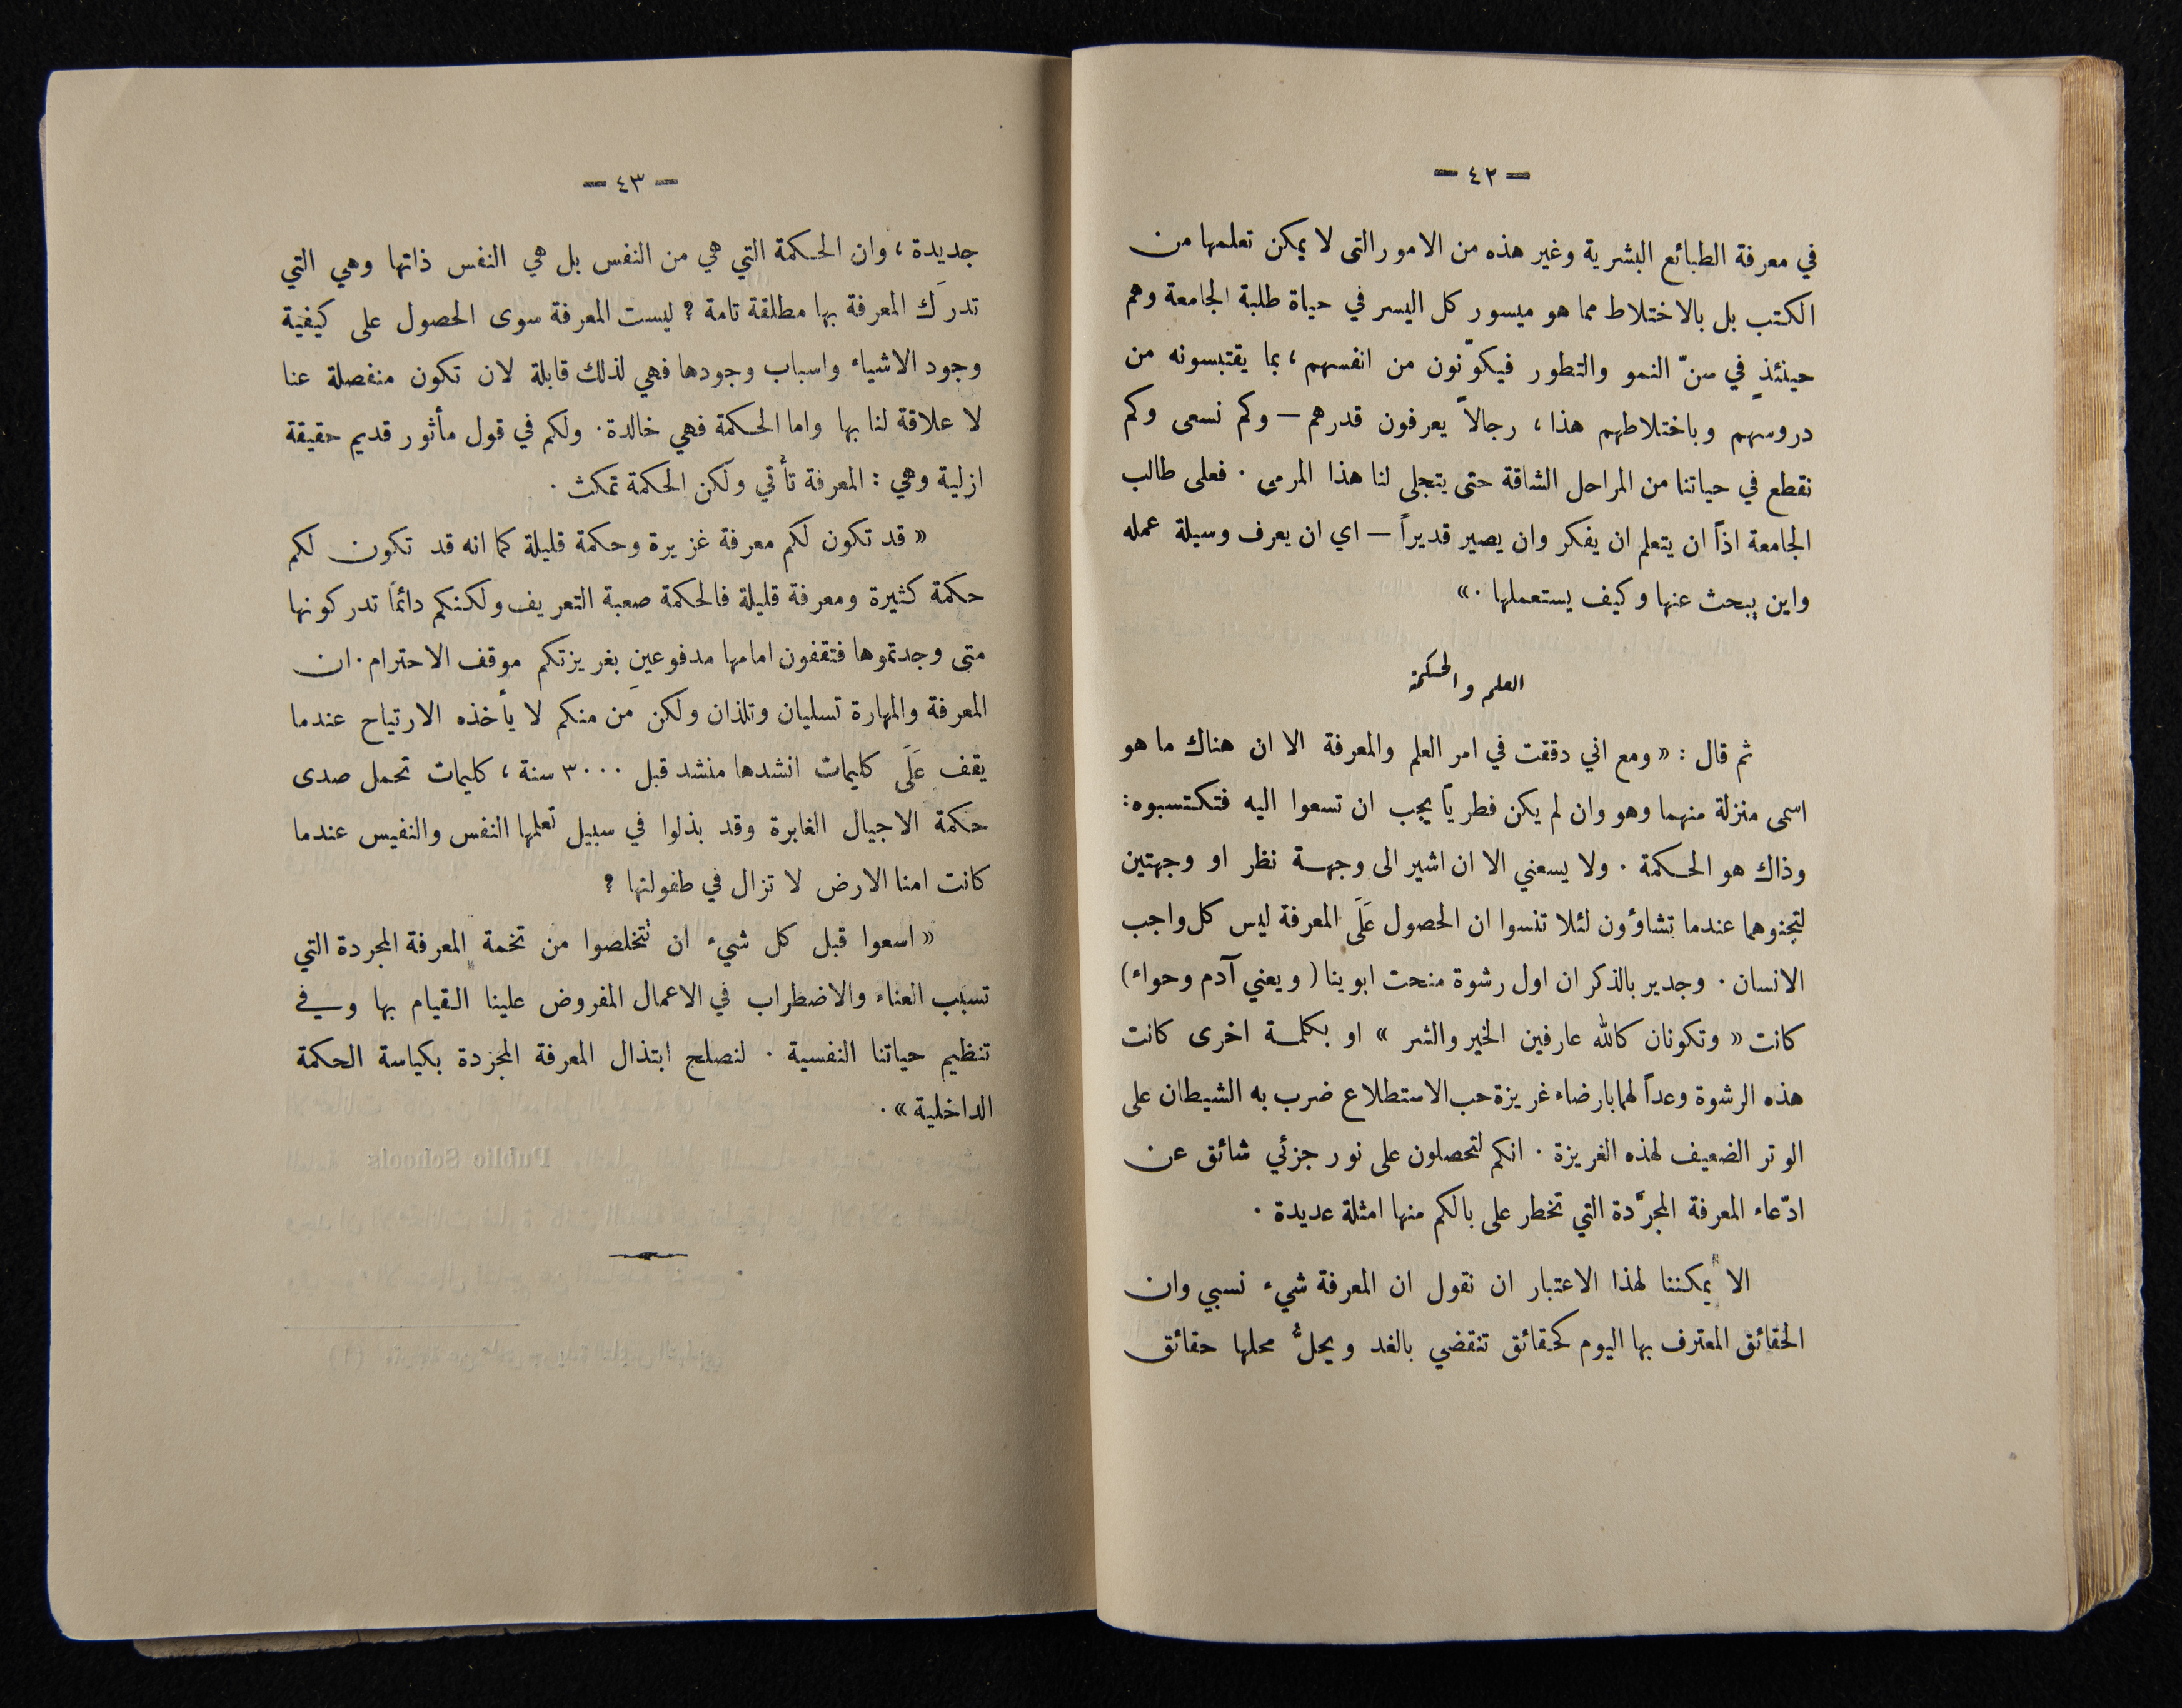 — ٤٢ —
في معرفة الطبائع البشرية وغير هذه من الامور التى لا يمكن تعلمها من
الكتب بل بالاختلاط مما هو ميسور كل اليسر في حياة طلبة الجامعة وهم
حينئذٍ في سنّ النمو والتطور فيكوّنون من انفسهم ، بما يقتبسونه من
دروسهم وباختلاطهم هذا ، رجالاً يعرفون قدرهم — وكم نسعى وكم
نقطع في حياتنا من المراحل الشاقة حتى يتجلى لنا هذا المرمى . فعلى طالب
الجامعة اذاً ان يتعلم ان يفكر وان يصير قديراً — اي ان يعرف وسيلة عمله
واين يبحث عنها وكيف يستعملها .»
العلم والحكمة
ثم قال : « ومع اني دققت في امر العلم والمعرفة الا ان هناك ما هو
اسمى منزلة منهما وهو وان لم يكن فطرياً يجب ان تسعوا اليه فتكتسبوه :
وذاك هو الحكمة . ولا يسعني الا ان اشير الى وجهة نظر او وجهتين
لتجنوهما عندما تشاؤون لئلا تنسوا ان الحصول عَلَى المعرفة ليس كل واجب
الانسان . وجدير بالذكر ان اول رشوة منحت ابوينا ( ويعني آدم وحواء )
كانت « وتكونان كالله عارفين الخير والشر » او بكلمة اخرى كانت
هذه الرشوة وعداً لهما بارضاء غريزة حب الاستطلاع ضرب به الشيطان على
الوتر الضعيف لهذه الغريزة . انكم لتحصلون على نور جزئي شائق عن
ادّعاء المعرفة المجرَّدة التي تخطر على بالكم منها امثلة عديدة .
الا يمكننا لهذا الاعتبار ان نقول ان المعرفة شيء نسبي وان
الحقائق المعترف بها اليوم كحقائق تنقضي بالغد ويحلُّ محلها حقائق
— ٤٣ —
جديدة ، وان الحكمة التي هي من النفس بل هي النفس ذاتها وهي التي
تدرَك المعرفة بها مطلقة تامة ؟ ليست المعرفة سوى الحصول على كيفية
وجود الاشياء واسباب وجودها فهي لذلك قابلة لان تكون منفصلة عنا
لا علاقة لنا بها واما الحكمة فهي خالدة . ولكم في قول مأثور قديم حقيقة
ازلية وهي : المعرفة تأتي ولكن الحكمة تمكث .
« قد تكون لكم معرفة غزيرة وحكمة قليلة كما انه قد تكون لكم
حكمة كثيرة ومعرفة قليلة فالحكمة صعبة التعريف ولكنكم دائماً تدركونها
متى وجدتموها فتقفون امامها مدفوعين بغريزتكم موقف الاحترام . ان
المعرفة والمهارة تسليان وتلذان ولكن مَن منكم لا يأخذه الارتياح عندما
يقف عَلَى كليمات انشدها منشد قبل ٣٠٠٠ سنة ، كليمات تحمل صدى
حكمة الاجيال الغابرة وقد بذلوا في سبيل تعلمها النفس والنفيس عندما
كانت امنا الارض لا تزال في طفولتها ؟
« اسعوا قبل كل شيء ان تتخلصوا من تخمة المعرفة المجردة التي
تسبب العناء والاضطراب في الاعمال المفروض علينا القيام بها وفي
تنظيم حياتنا النفسية . لنصلح ابتذال المعرفة المجردة بكياسة الحكمة
الداخلية » .